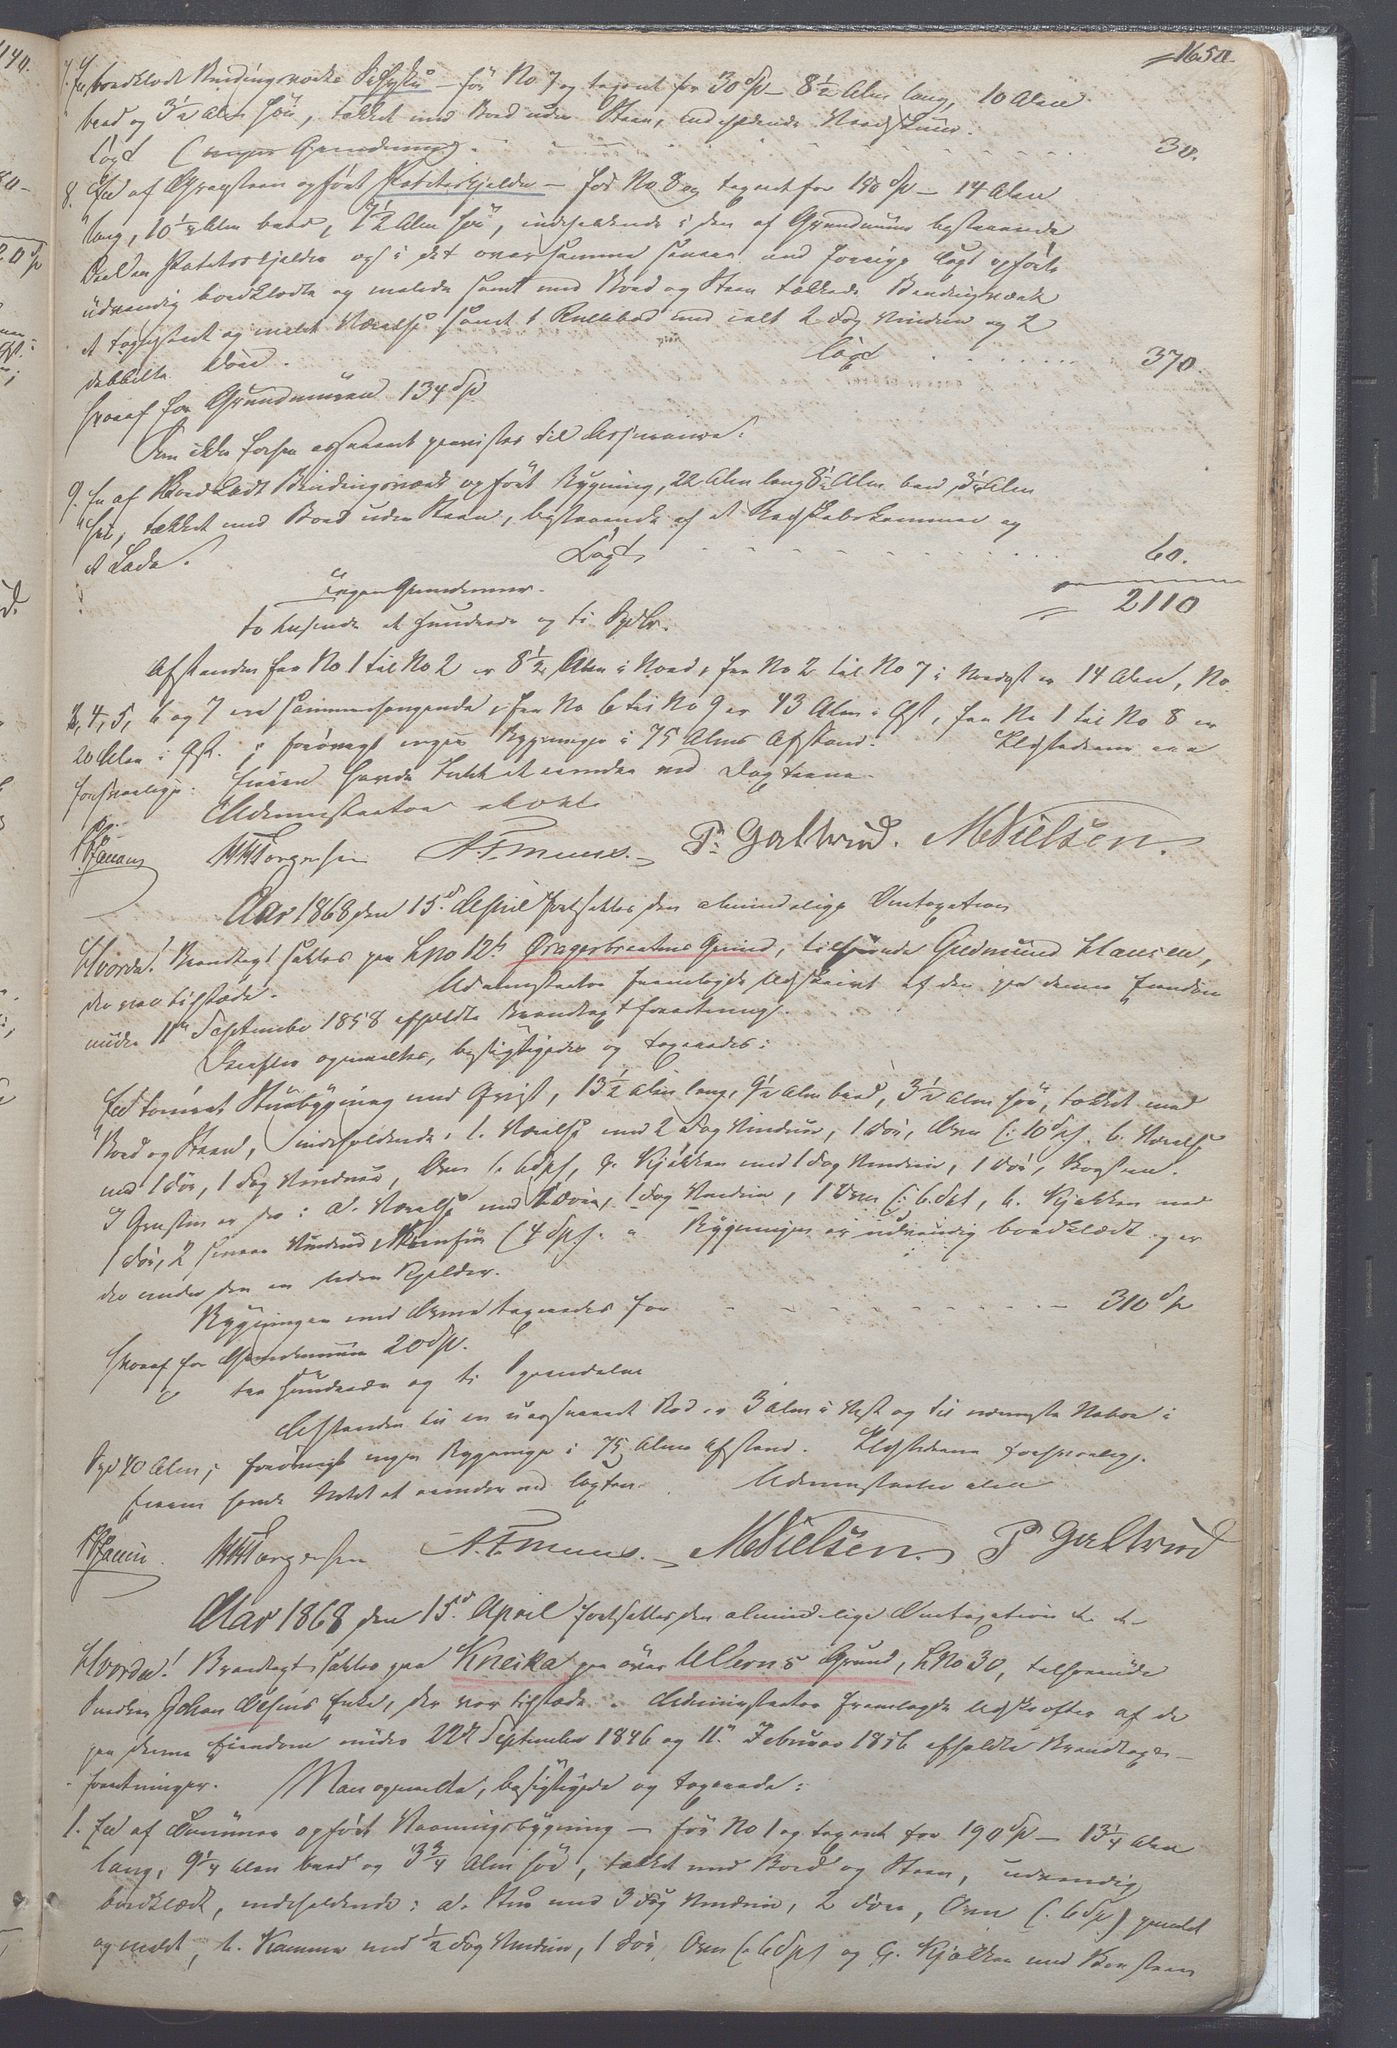 165a
7. En bordklædt Bindingsværks Vedskjul – før No 7 og taxeret for 30 Sp – 8½ Alen lang, 10 Alen
bred og 3½ Alen høi, tækket med Bord uden Steen, indeholdende Vedskuur.
Taxt (ingen Grundmuur) 30.
8. En af Graasteen opført Poteteskjelder – før No 8 og taxeret for 150 Sp – 14 Alen
lang, 10½ Alen bred, 7½ Alen høi, indeholdende i den af Grundmuur bestaaende
Deel en Potetekjelder og i det over samme senere end forrige Taxt opførte
udvendig bordklædte og malede samt med Bord og Steen tækkede Bindingsværk
et og malet Værelse samt 1 Rullebod med ialt 2 Fag Vinduer og 2
dobbelte Døre. Taxt 370.
hvoraf for Grundmuren 134 Sp
Som ikke forhen assureret henvises til Assurance.
9. En af Bordklædt Bindingsværk opført Bygning, 22 Alen lang, 8½ Alen bred, 3½ Alen
høi, tækket med Bord uden Steen, bestaaende af et Redskabskammer og
et Lade. Taxt 60.
ingen Grundmuur. 2110
to tusende et hundrede og ti Spdlr.
Afstanden fra No 1 til No 2 er 8½ Alen i Nord, fra No 2 til No 7 i Nordost er 14 Alen, No
3, 4, 5, 6 og 7 ere sammenhængende, fra No 6 til No 9 er 43 Alen i Øst, fra No 1 til No 8 er
20 Alen i Øst. forøvrigt ingen Bygninger i 75 Alens Afstand. Ildstederne ere
forsvarlige. Eieren havde Intet at erindre ved Taxterne.
Administrator ikke
HHTorgersen P. Galtrud. MNielsen.
Aar 1868 den 15de April fortsattes den almindelige Omtaxation
Hvorda! Brandtaxt sattes paa LNo 12h Dragerbraatens Grund, tilhørende Gudmund Hansen,
der var tilstede. Administrator fremlagde Udskrivt af den paa denne Eiendom
under 11te September 1858 afholdte Brandtaxtforretning.
Derefter opmaaltes, besigtigedes og taxeredes:
En tømret Stuebygning med Qvist, 13½ Alen lang, 9½ Alen bred, 3½ Alen høi, tækket med
Bord og Steen, indeholdende: 1. Værelse med 2 Fag Vinduer, 1 Dør, Ovn (: 10 Sp :) b. Værelse
med 1 Dør, 1 Fag Vinduer, Ovn (: 6 Sp :), c. Kjøkken med 1 Fag Vinduer, 1 Dør, Bagsteen.
I Qvisten er der: a. Værelse med 1 Døre, 1 Fag Vinduer, 1 Ovn (: 6 Sp :), b. Kjøkken med
1 Dør, 2 smaa Vinduer (4 Sp :) Bygningen er udvendig bordklædt og er
der under den en liden Kjelder.
Bygningen med Ovne taxeredes for 310 Sp
hvoraf for Grundmuren 20 Sp.
tre hundrede og ti Speciedaler
Afstanden til en uassureret Bod er 3 Alen i Vest og til nærmeste Naboe i
Syd 40 Alen; forøvrigt ingen Bygninger i 75 Alens Afstand. Ildstederne forsvarlige.
Eieren havde Intet at erindre ved Taxten. Administrator
HHTorgersen MNielsen. P Galtrud
Aar 1868 den 15de April fortsattes den almindelige Omtaxation
Hvorda! Brandtaxt sattes paa Kneika paa øvre Grund, LNo 30, tilhørende
Snedker Johan Enke, der var tilstede. Administrator fremlagde Udskrifter af de
paa denne Eiendom under 22de September 1846 og 11te Februar 1856 afholdte Brandtaxt-
forretninger. Man opmaalte, besigtigede og taxerede:
1. En af Tømmer opført Vaaningsbygning – før No 1 og taxeret for 190 Sp – 13¼ Alen
lang, 9¼ Alen bred og 3¾ Alen høi, tækket med Bord og Steen, udvendig
bordklædt, indeholdende: a. Stue med 3 Fag Vinduer, 2 Døre, Ovn (: 6 Sp) panelet
og malet, b. Kammer med ½ Fag Vinduer, 1 Dør, Ovn (: 6 Sp :) og c. Kjøkken med Bagsteen